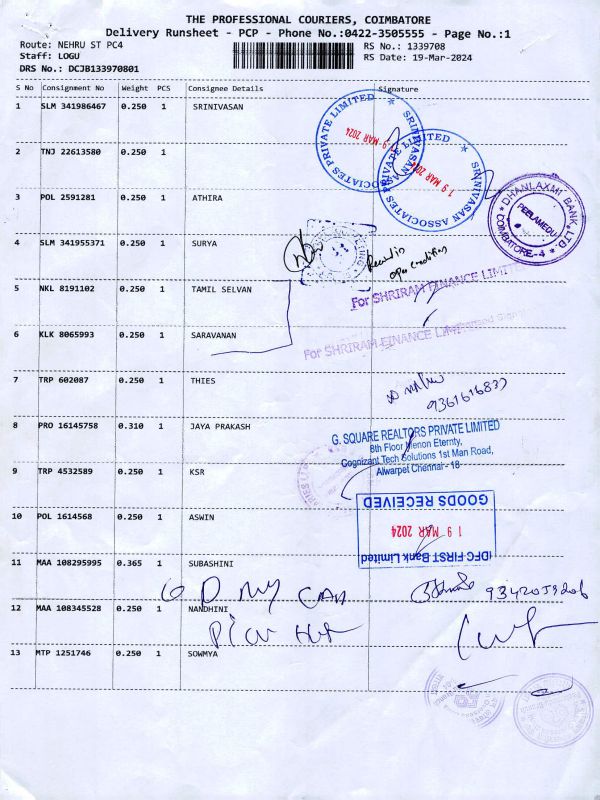 THE PROFESSIONAL COURIERS, COIMBATORE
Delivery Runsheet - PCP - Phone No.:0422-3505555 - Page No.:1
Route: NEHRU ST PC4
RS No.: 1339708
Staff: LOGU
RS Date: 19-Mar-2024
DRS No.: DCJB133970801
S No Consignment No Weight PCS Consignee Details Signature
1 SLM 341986467 0.250 1 SRINIVASAN
SRINIVASAN ASSOCIATES PRIVATE LIMITED
19 MAR 2024
SRINIVASAN ASSOCIATES PRIVATE LIMITED
19 MAR 2024
2 TNJ 22613580 0.250 1
3 POL 2591281 0.250 1 ATHIRA
DHANLAXMI BANK LTD.
PEELAMEDU
COIMBATORE-4
4 SLM 341955371 0.250 1 SURYA
5 NKL 8191102 0.250 1 TAMIL SELVAN
For SHRIRAM FINANCE LIMITED
6 KLK 8065993 0.250 1 SARAVANAN
For SHRIRAM FINANCE LIMITED
7 TRP 602087 0.250 1 THIES
8 PRO 16145758 0.310 1 JAYA PRAKASH
G. SQUARE REALTORS PRIVATE LIMITED
8th Floor Menon Eternty,
Cognizant Tech Solutions 1st Man Road,
Alwarpet Chennai - 18
9 TRP 4532589 0.250 1 KSR
GOODS RECEIVED
10 POL 1614568 0.250 1 ASWIN
19 MAR 2024
IDFC FIRST Bank Limited
11 MAA 108295995 0.365 1 SUBASHINI
12 MAA 108345528 0.250 1 NANDHINI
13 MTP 1251746 0.250 1 SOWMYA